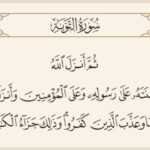 سُورَةُ التَّوْبَةِ
ثُمَّ أَنزَلَ اللَّهُ
سَكِينَتَهُ عَلَىٰ رَسُولِهِ وَعَلَى الْمُؤْمِنِينَ وَأَنزَلَ
وَعَذَّبَ الَّذِينَ كَفَرُوا وَذَٰلِكَ جَزَاءُ